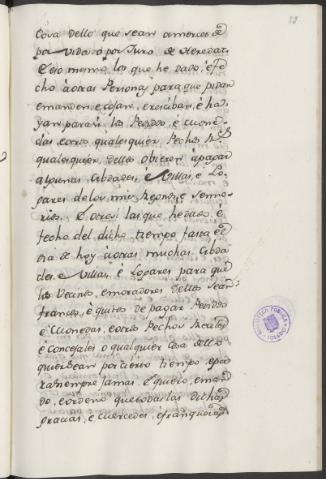 Cosa dello que sean a merced
por Vida, ô por Juro de Heredad.
E eso mesmo los que he dado, è fe
cho à otras Personas para que pidan
è manden, è cojan, è resciban, è ha
yan para sí, los Pedidos, è mone
das, è otros qualesquier Pechos
qualesquier dellos obieren à pagar
algunas Cibdades, è Villas, è Lo
gares de los mis Regnos, è Seño
rios. E otrosí las que he dado, è
fecho del dicho tiempo fasta el
dia de hoy à otras muchas Cibda
des, è Villas, è Logares para que
los Vecinos, è moradores dellos sean
francos, è quitos de pagar Pedidos
è Monedas, è otros Pechos Reales
è Concejales, o qualquier Cosa dello
quier sean por cierto tiempo, è pa
ra siempre Jamas. È quiero, è man
do, è ordeno que todas las dichas
gracias, è mercedes, è franquezas